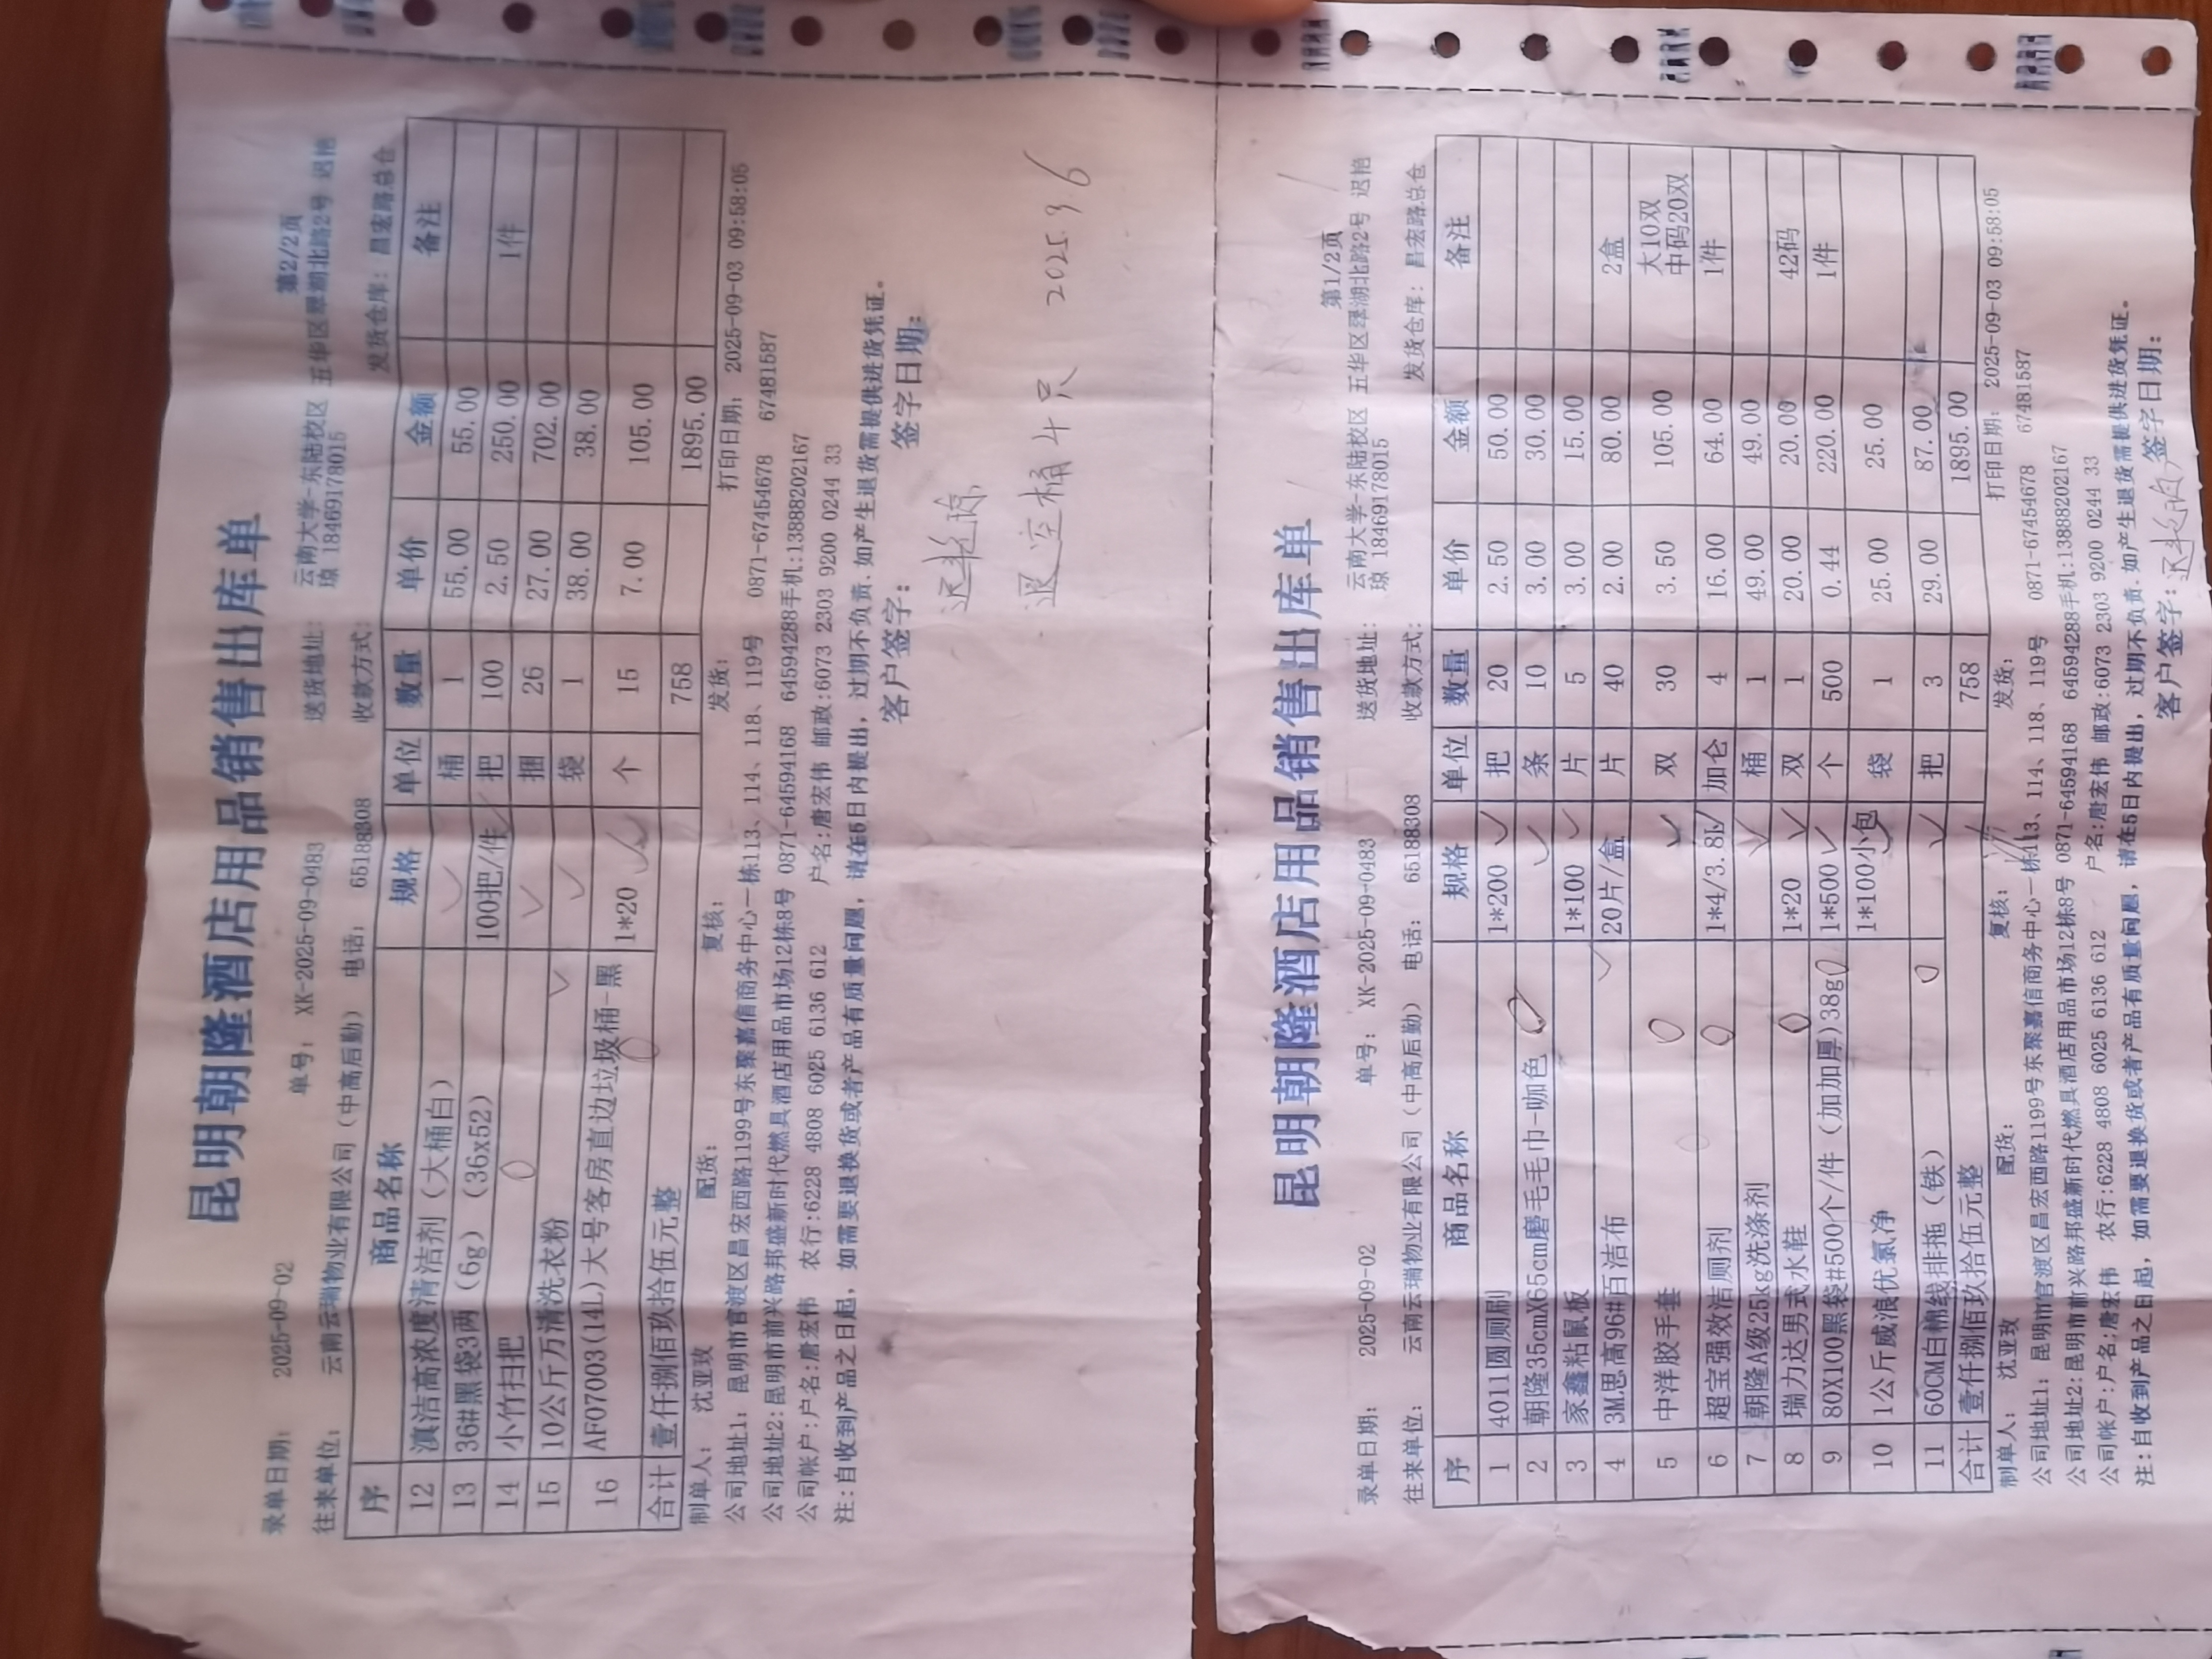 昆明朝隆酒店用品销售出库单
第1/2页
录单日期: 2025-09-02 单号: XK-2025-09-0483 送货地址: 云南大学-东陆校区 五华区翠湖北路2号 迟艳琼 18469178015
往来单位: 云南云瑞物业有限公司(中高后勤) 电话: 65188308 收款方式: 发货仓库: 昌宏路总仓
序 商品名称 规格 单位 数量 单价 金额 备注
1 4011圆厕刷 1*200 把 20 2.50 50.00
2 朝隆35cmX65cm磨毛毛巾-咖色 条 10 3.00 30.00
3 家鑫粘鼠板 1*100 片 5 3.00 15.00
4 3M思高96#百洁布 20片/盒 片 40 2.00 80.00 2盒
5 中洋胶手套 双 30 3.50 105.00 大10双 中码20双
6 超宝强效洁厕剂 1*4/3.8L 加仑 4 16.00 64.00 1件
7 朝隆A级25kg洗涤剂 桶 1 49.00 49.00
8 瑞力达男式水鞋 1*20 双 1 20.00 20.00 42码
9 80X100黑袋#500个/件(加加厚)38g 1*500 个 500 0.44 220.00 1件
10 1公斤威浪优氯净 1*100小包 袋 1 25.00 25.00
11 60CM白棉线排拖(铁) 把 3 29.00 87.00
合计 壹仟捌佰玖拾伍元整 758 1895.00
制单人: 沈亚玫 配货: 复核: 发货: 打印日期: 2025-09-03 09:58:05
公司地址1: 昆明市官渡区昌宏西路1199号东聚嘉信商务中心一栋113、114、118、119号 0871-67454678 67481587
公司地址2:昆明市前兴路邦盛新时代燃具酒店用品市场12栋8号 0871-64594168 64594288手机:13888202167
公司帐户:户名:唐宏伟 农行:6228 4808 6025 6136 612 户名:唐宏伟 邮政:6073 2303 9200 0244 33
注:自收到产品之日起,如需要退换货或者产品有质量问题,请在5日内提出,过期不负责.如产生退货需提供进货凭证。
客户签字: 签字日期:
昆明朝隆酒店用品销售出库单
第2/2页
录单日期: 2025-09-02 单号: XK-2025-09-0483 送货地址: 云南大学-东陆校区 五华区翠湖北路2号 迟艳琼 18469178015
往来单位: 云南云瑞物业有限公司(中高后勤) 电话: 65188308 收款方式: 发货仓库: 昌宏路总仓
序 商品名称 规格 单位 数量 单价 金额 备注
12 滇洁高浓度清洁剂(大桶白) 桶 1 55.00 55.00
13 36#黑袋3两(6g)(36x52) 100把/件 把 100 2.50 250.00 1件
14 小竹扫把 捆 26 27.00 702.00
15 10公斤万清洗衣粉 袋 1 38.00 38.00
16 AF07003(14L)大号客房直边垃圾桶-黑 1*20 个 15 7.00 105.00
合计 壹仟捌佰玖拾伍元整 758 1895.00
制单人: 沈亚玫 配货: 复核: 发货: 打印日期: 2025-09-03 09:58:05
公司地址1: 昆明市官渡区昌宏西路1199号东聚嘉信商务中心一栋113、114、118、119号 0871-67454678 67481587
公司地址2:昆明市前兴路邦盛新时代燃具酒店用品市场12栋8号 0871-64594168 64594288手机:13888202167
公司帐户:户名:唐宏伟 农行:6228 4808 6025 6136 612 户名:唐宏伟 邮政:6073 2303 9200 0244 33
注:自收到产品之日起,如需要退换货或者产品有质量问题,请在5日内提出,过期不负责.如产生退货需提供进货凭证。
客户签字: 签字日期:
迟艳琼
退空桶4只 2025.9.6